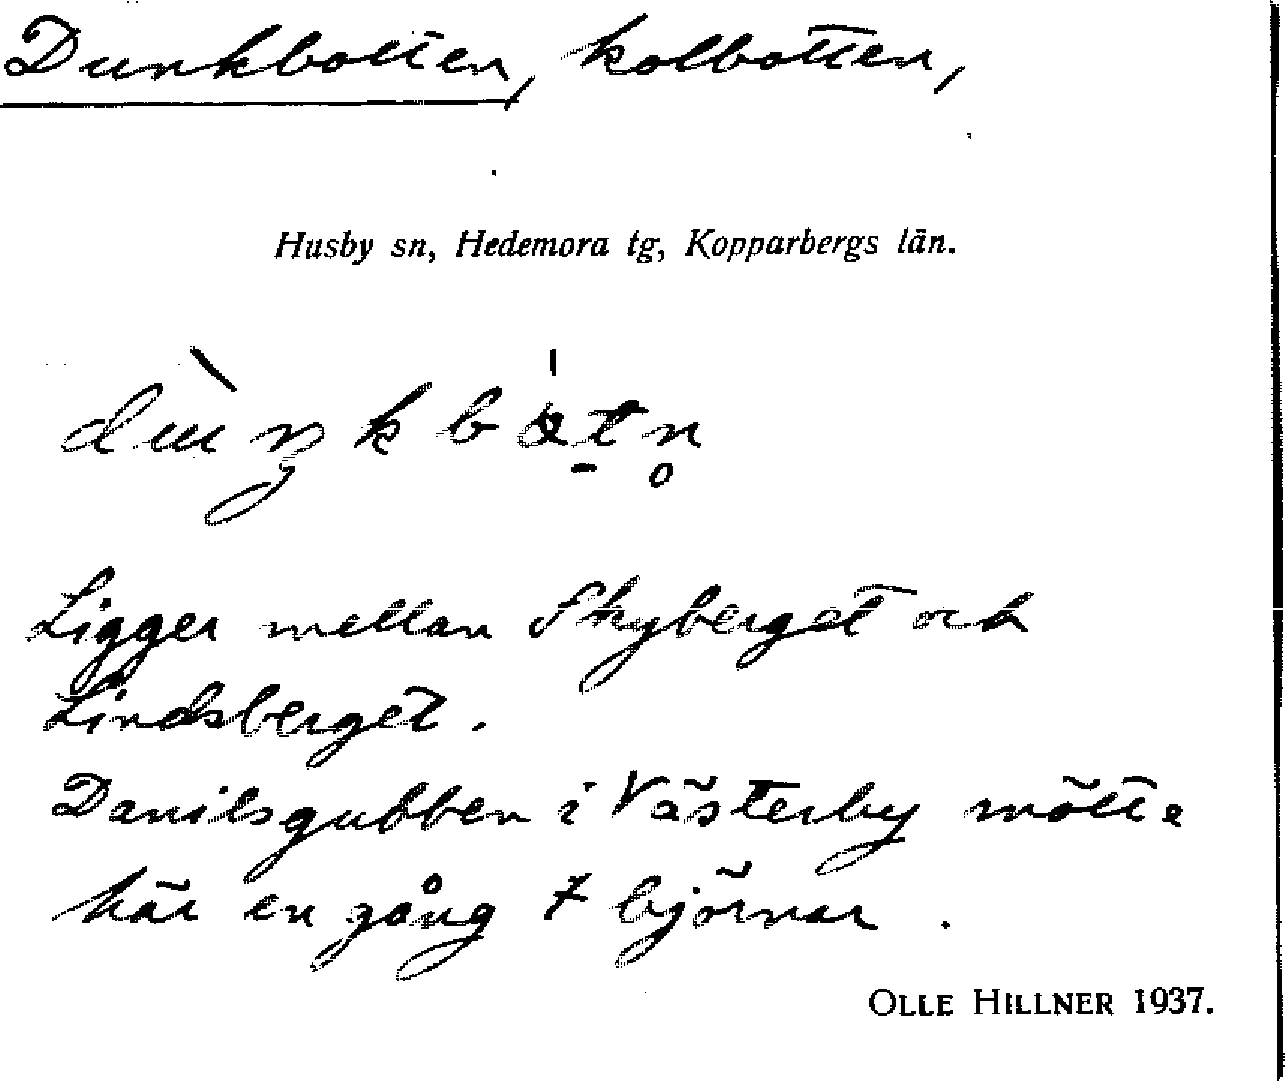 Dunkbotten, kolbotten,
Husby sn, Hedemora tg, Kopparbergs län.
Ligger mellan Skyberget och
Lindsberget.
Danilsgubben i Västerby mötte
här en gång 7 björnar.
OLLE HILLNER 1937.